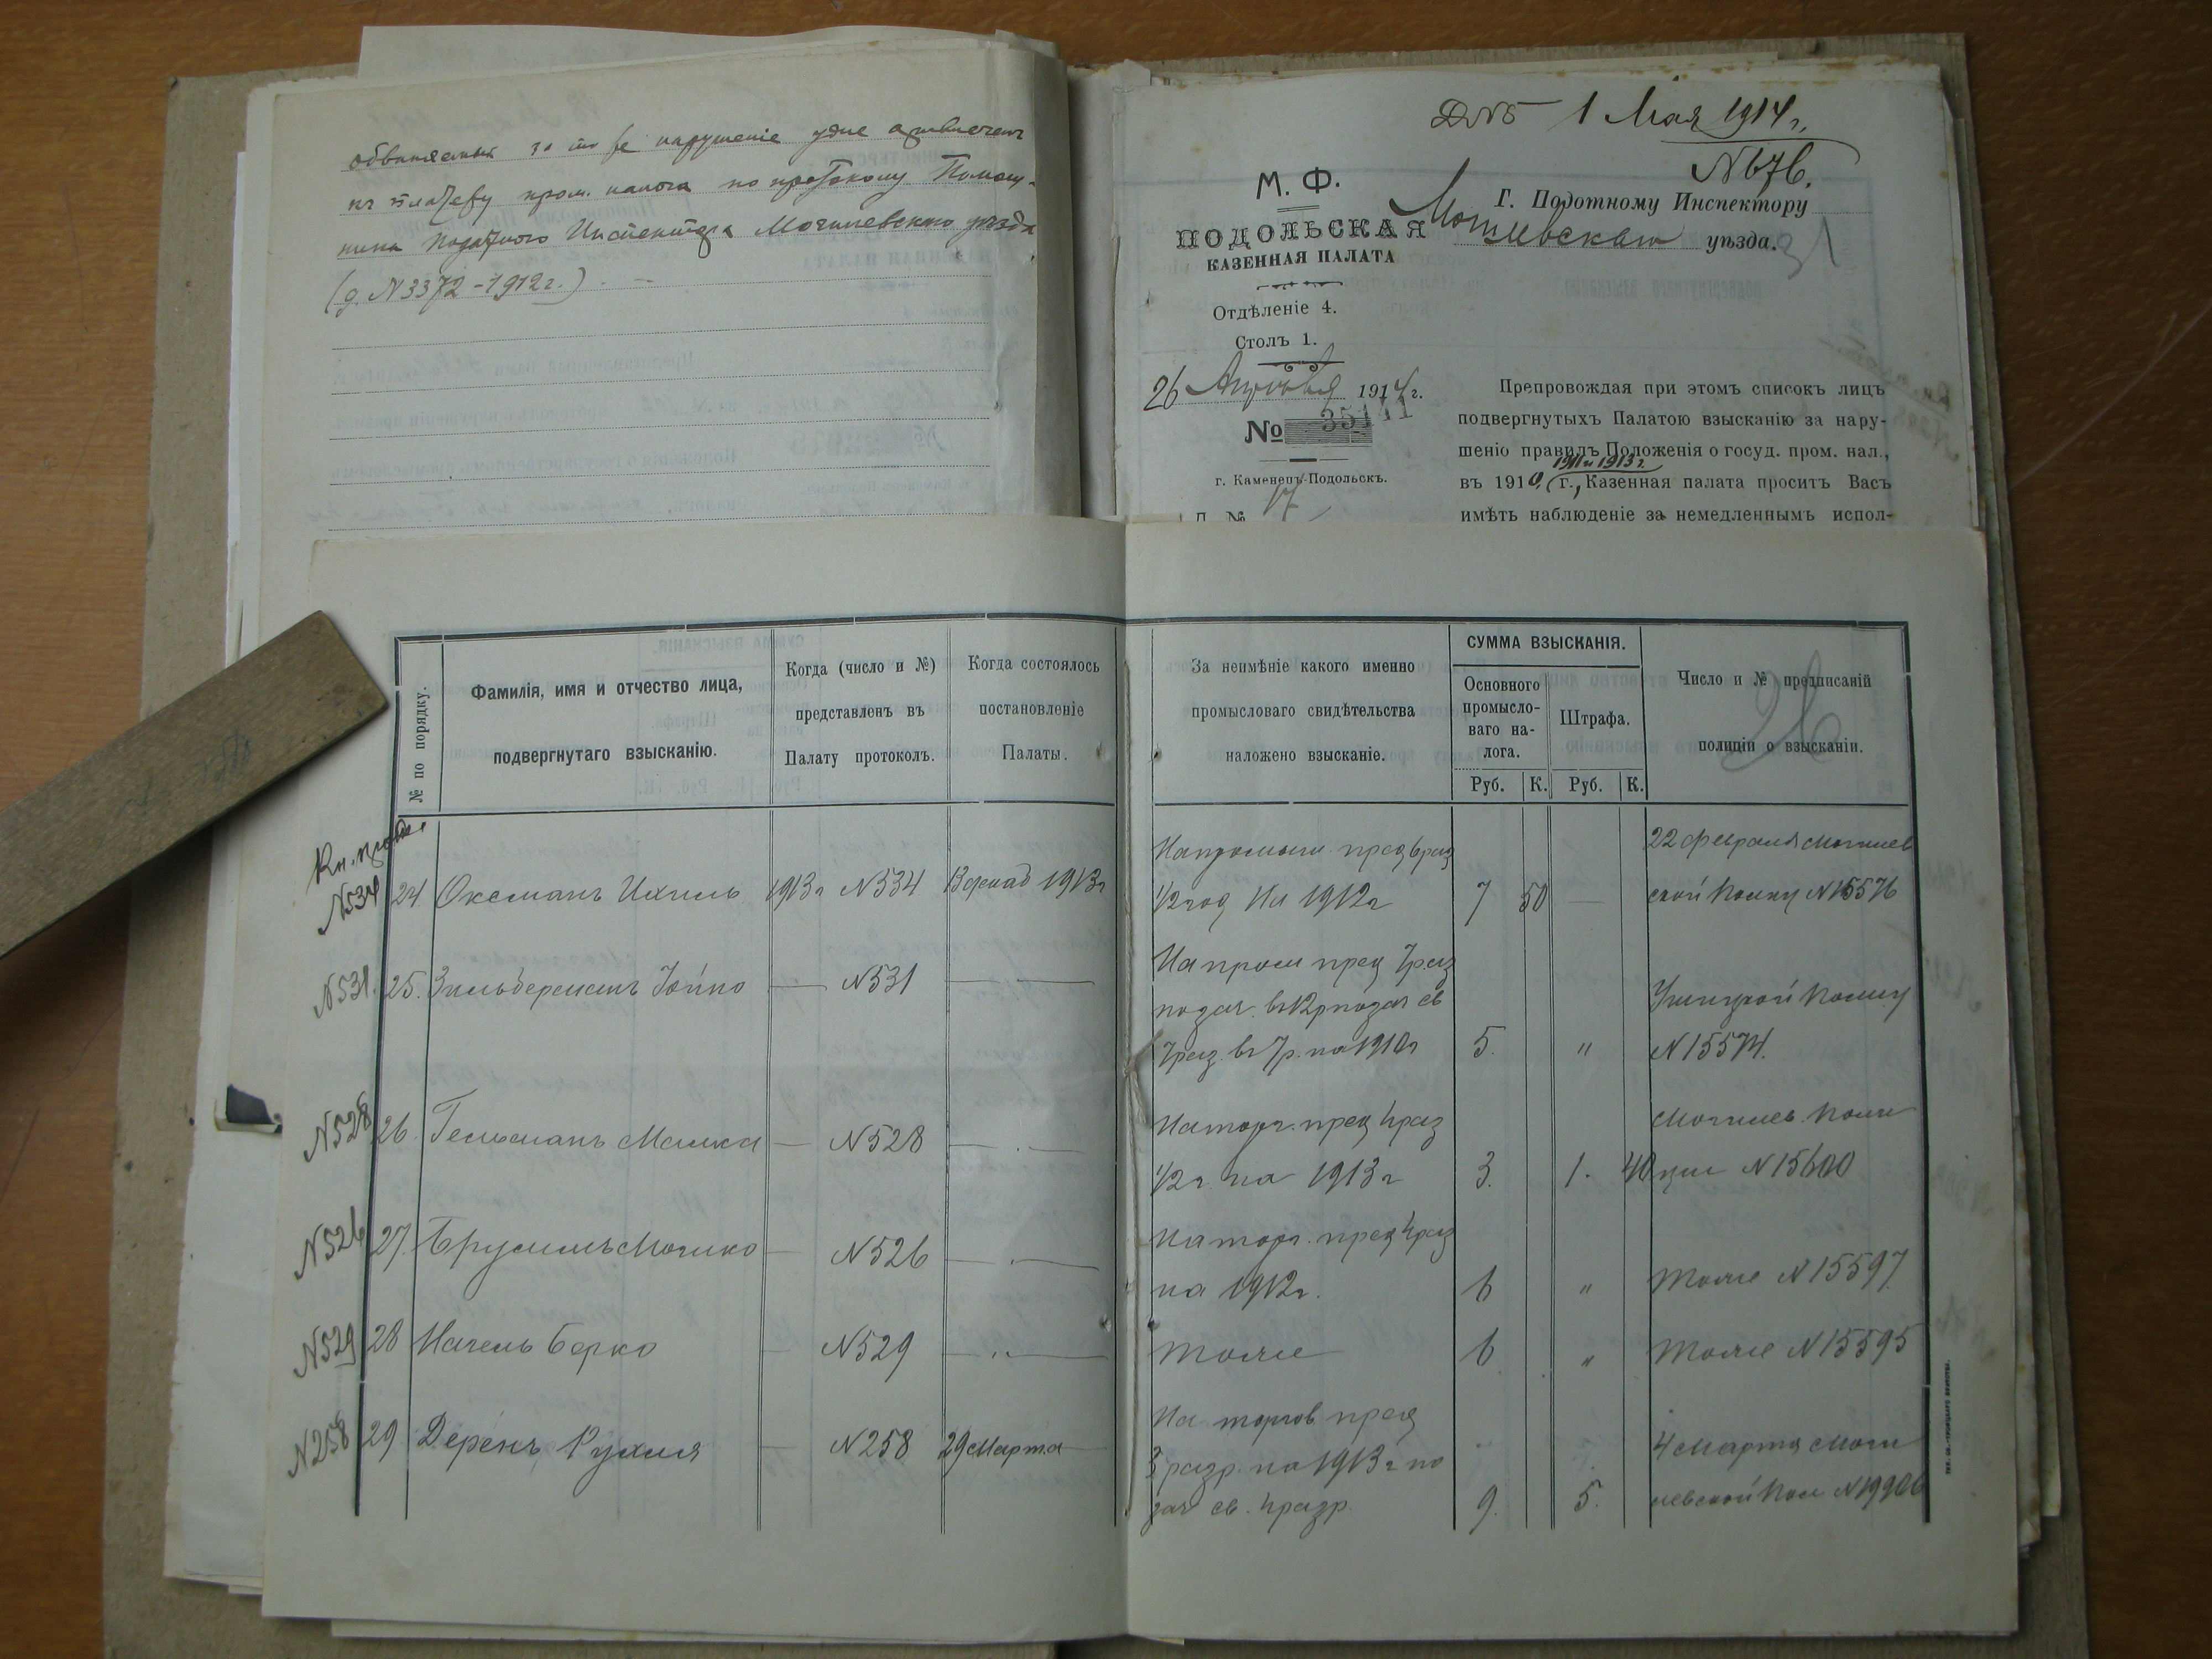 обвиняемый за то же нарушеніе уже привлеченъ
къ платежу пром. налога по протоколу Помощ-
ника Податного Инспектора Могилевскаго уѣзда
(д. N 3372 - 1912 г.). —
1 Мая 1914 г.
N 676.
М. Ф.
ПОДОЛЬСКАЯ
КАЗЕННАЯ ПАЛАТА
Отдѣленіе 4.
Столъ 1.
26 Апрѣля 1914 г.
№ 35141
г. Каменецъ-Подольскъ.
17
Г. Подотному Инспектору
Могилевскаго уѣзда.
31
Препровождая при этомъ списокъ лицъ
подвергнутыхъ Палатою взысканію за нару-
шеніо правилъ Положенія о госуд. пром. нал.,
1911 и 1913 г.
въ 1910, г., Казенная палата проситъ Васъ
имѣть наблюденіе за немедленнымъ испол-
№ по порядку.
Фамилія, имя и отчество лица,
подвергнутаго взысканію.
Когда (число и №)
представленъ въ
Палату протоколъ.
Когда состоялось
постановленіе
Палаты.
За неимѣніе какого именно
промысловаго свидѣтельства
наложено взысканіе.
СУММА ВЗЫСКАНІЯ.
Основного
промысло-
ваго на-
лога.
Штрафа.
Руб. К. Руб. К.
Число и № предписаній
полиціи о взысканіи.
26
Кн. прот.
N534 24 Оксманъ Ихиль 1913 г N534 1913 г
На промышл. пред 6 раз
1/2 год на 1912 г 7 50 —
22 февраля Могилев
ской Полиц N 15576
N531. 25. Зильберманъ Іойно — N531 —
На пром пред 7 раз
7 раз. на 1910 г 5. "
Ушицкой Полиц
N 15574.
N528 26. Гельманъ Малка — N528 —
На торг. пред 4 раз
1/2 г. на 1913 г 3. 1. 40
Могилев. Поли
ціи N 15600
N526 27. Брусиль Мошко — N526 —
На торг. пред 4 раз
на 1912 г. 6 "
Тоже N 15597
N529 28 Нагель Берко — N529 — " —
Тоже 6 "
Тоже N 15595
N258 29 Деренъ Рухля — N258 29 Марта
На торгов пред
3 разр. на 1913 г по
зач св. 4 разр. 9. 5.
4 Марта Моги
левской Пол N 19906